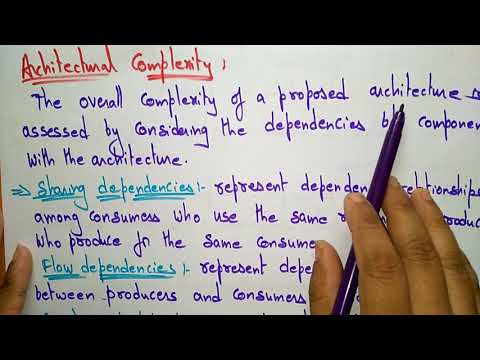 Architectural Complexity :
The overall complexity of a proposed architecture
assessed by considering the dependencies b/w componen
with the architecture.
=> Sharing dependencies :- represent dependen relationships
among consumers who use the same r produc
who produce for the same consume
Flow dependencies :- represent depe
between producers and consumers